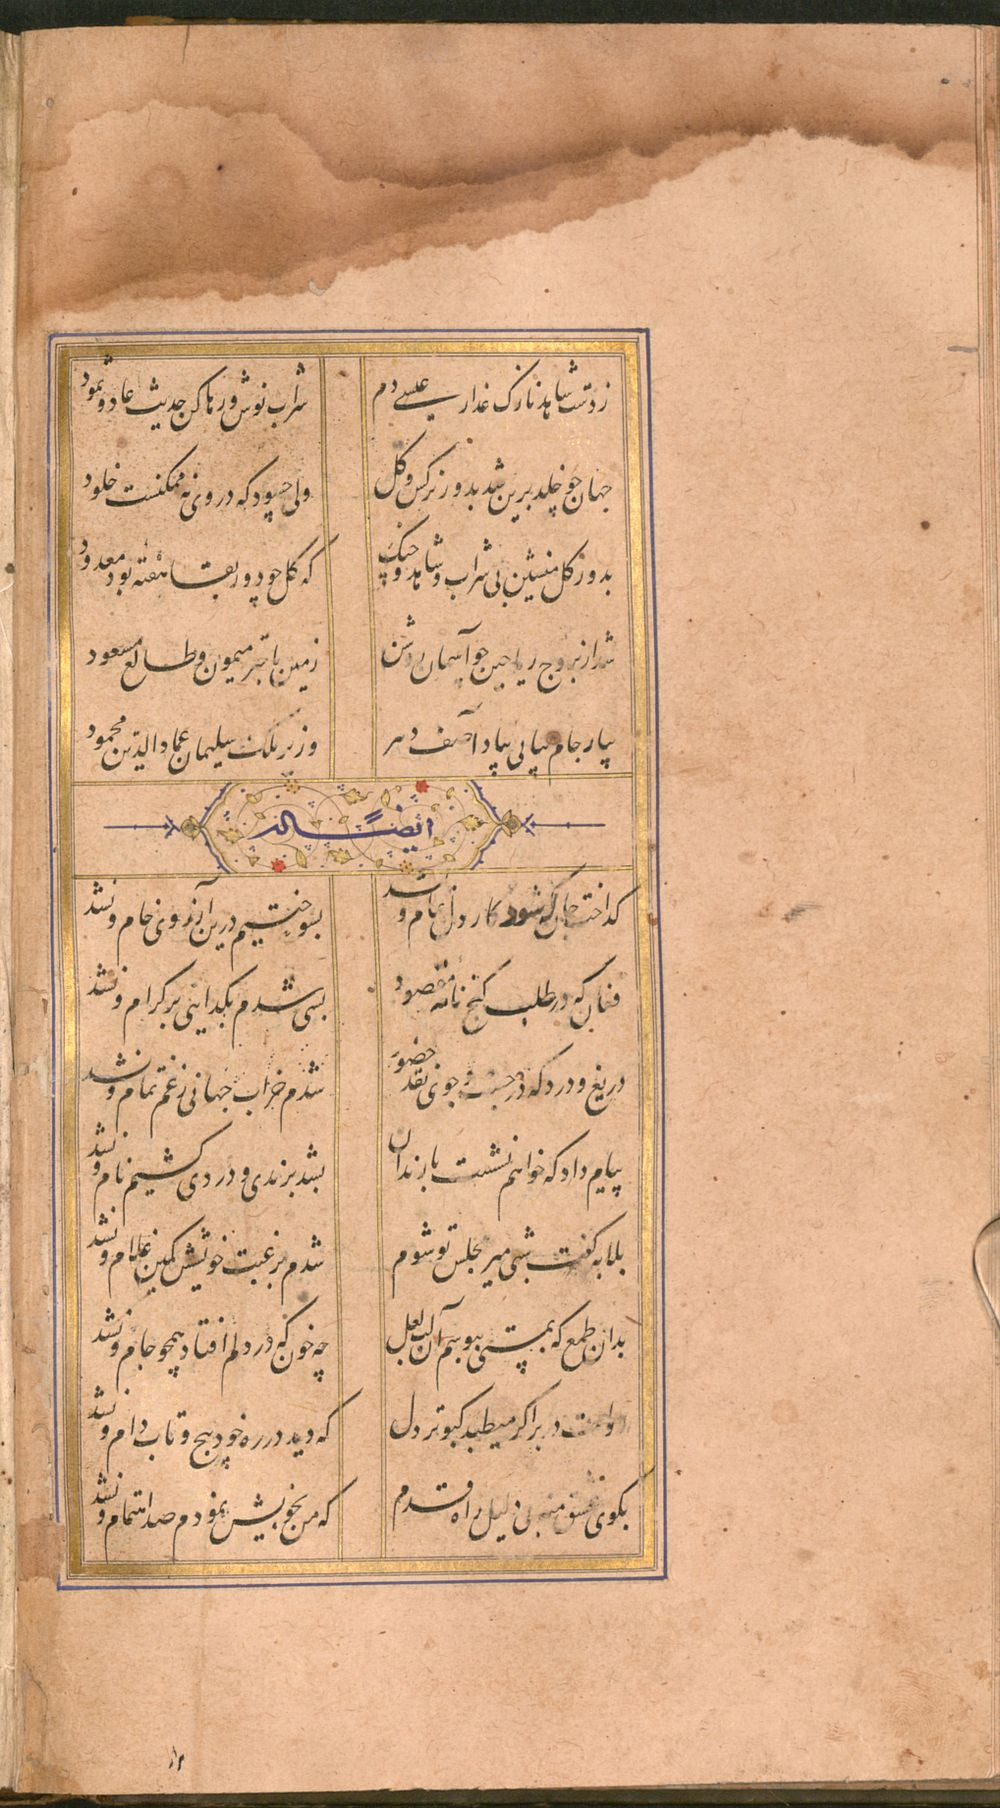 زدست شاهد نازک عذار عیسی دم
شراب نوش و رها کن حدیث عاد و ثمود
جهان چو خلد برین شد بدور نرکس و کل
ولی چه سود که در وی نه ممکنست خلود
بدور کل منشین بی شراب و شاهد و چنک
که کل چو دور بقا هفته بود معدود
شد از بروج ریاحین چو آسمان روشن
زمین باختر میمون و طالع مسعود
بیار جام میابی بیاد آصف دهر
وزیر ملک سلیمان عماد الدین محمود
ایضا له
کداخت جان که شود کار دل تمام و نشد
بسوختیم درین آرزوی خام و نشد
فغان که در طلب کنج نامه مقصود
بسی شدم بکدایی بر کرام و نشد
دریغ و درد که در جست و جوی نقد حضور
شدم خراب جهانی زغم تمام و نشد
پیام داد که خواهم نشست با رندان
بشد برندی و دردی کشیم نام و نشد
بلابه کفت شبی میر مجلس تو شوم
شدم برغبت خویش کمین غلام و نشد
بدان طمع که بمستی ببوسم آن لب لعل
چه خون که در دلم افتاد همچو جام و نشد
رواست در بر اکر میطپد کبوتر دل
که دید در ره خود پیچ و تاب دام و نشد
بکوی عشق منه بی دلیل راه قدم
که من بخویش نمودم صد اهتمام و نشد